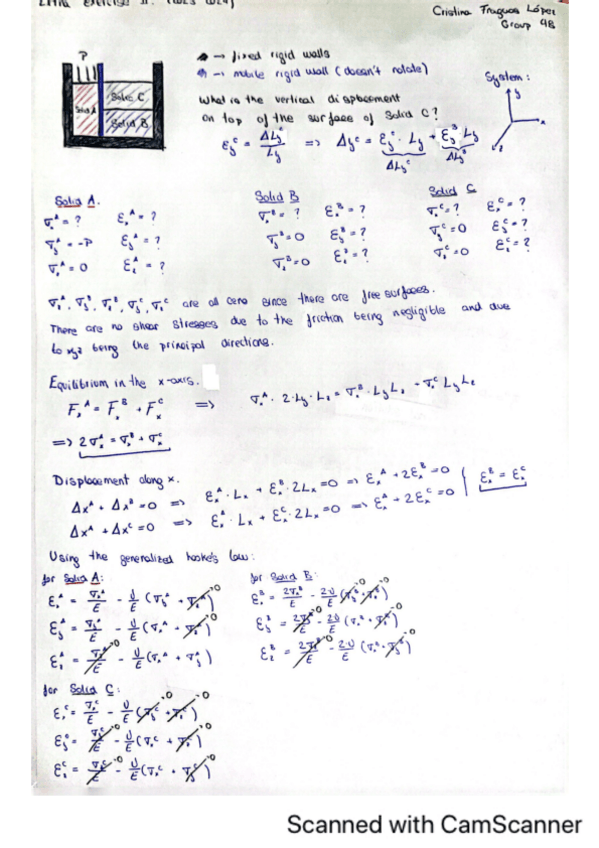 Cristina Fraguas López
Group 9B
P
Solid A
Solid C
Solid B
→ fixed rigid walls
→ mobile rigid wall (doesn't rotate)
System:
y
x
z
What is the vertical displacement
on top of the surface of Solid C?
εy^C = ΔLy^C / Ly => Δy^C = εy^C · Ly + εy^B · Ly
ΔLy^C ΔLy^B
Solid A. Solid B Solid C
σx^A = ? εx^A = ? σx^B = ? εx^B = ? σx^C = ? εx^C = ?
σy^A = -P εy^A = ? σy^B = 0 εy^B = ? σy^C = 0 εy^C = ?
σz^A = 0 εz^A = ? σz^B = 0 εz^B = ? σz^C = 0 εz^C = ?
are all cero since there are free surfaces.
There are no shear stresses due to the friction being negligible and due
to xyz being the principal directions.
Equilibrium in the x-axis.
Fx^A = Fx^B + Fx^C => σx^A · 2·Ly·Lz = σx^B · Ly Lz + σx^C Ly Lz
=> 2σx^A = σx^B + σx^C
Displacement along x.
Δx^A + Δx^B = 0 => εx^A · Lx + εx^B · 2Lx = 0 => εx^A + 2εx^B = 0
Δx^A + Δx^C = 0 => εx^A · Lx + εx^C · 2Lx = 0 => εx^A + 2εx^C = 0
εx^B = εx^C
Using the generalized hooke's law:
for Solid A: for Solid B:
εx^A = σx^A/E - ν/E (σy^A + σz^A) εx^B = 2σx^B/E - 2ν/E (σy^B + σz^B)
εy^A = σy^A/E - ν/E (σx^A + σz^A) εy^B = 2σy^B/E - 2ν/E (σx^B + σz^B)
εz^A = σz^A/E - ν/E (σx^A + σy^A) εz^B = 2σz^B/E - 2ν/E (σx^B + σy^B)
for Solid C:
εx^C = σx^C/E - ν/E (σy^C + σz^C)
εy^C = σy^C/E - ν/E (σx^C + σz^C)
εz^C = σz^C/E - ν/E (σx^C + σy^C)
Scanned with CamScanner